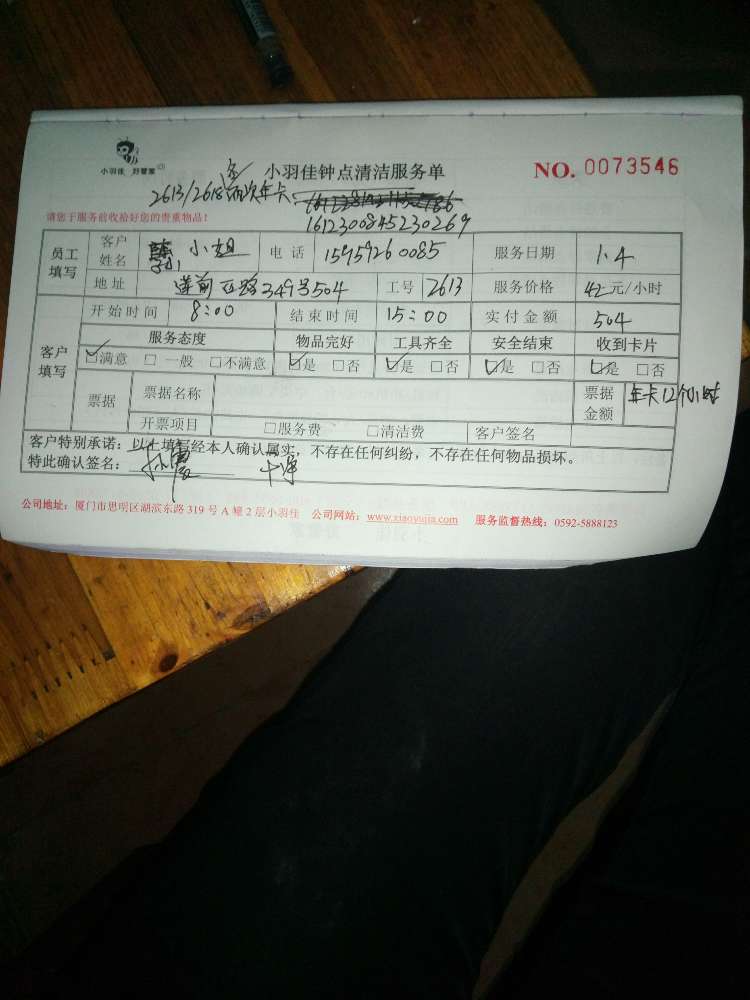 小羽佳 好管家
小羽佳钟点清洁服务单
NO. 0073546
2613/2618 年卡:
1612300845230269
请您于服务前收拾好您的贵重物品!
员工填写 客户姓名 小姐 电话 15959260085 服务日期 1.4
地址 莲前西路349号504 工号 2613 服务价格 42元/小时
客户填写 开始时间 8:00 结束时间 15:00 实付金额 504
服务态度 物品完好 工具齐全 安全结束 收到卡片
☑满意 □一般 □不满意 ☑是 □否 ☑是 □否 ☑是 □否 ☑是 □否
票据 票据名称 票据金额 年卡12个小时
开票项目 □服务费 □清洁费 客户签名
客户特别承诺:以上填写经本人确认属实,不存在任何纠纷,不存在任何物品损坏。
特此确认签名: 干净
公司地址:厦门市思明区湖滨东路 319 号 A 幢 2 层小羽佳 公司网站:www.xiaoyujia.com 服务监督热线:0592-5888123